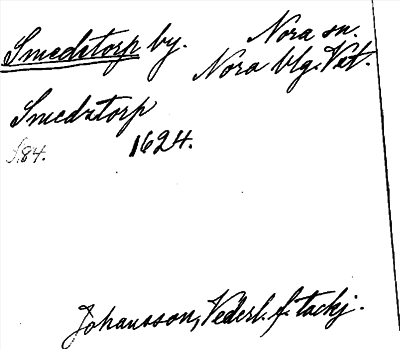 Smedstorp by.
Nora sn.
Nora blg. Vst.
Smedstorp
f.84.
1624.
Johansson, Vederl. f. tackj.